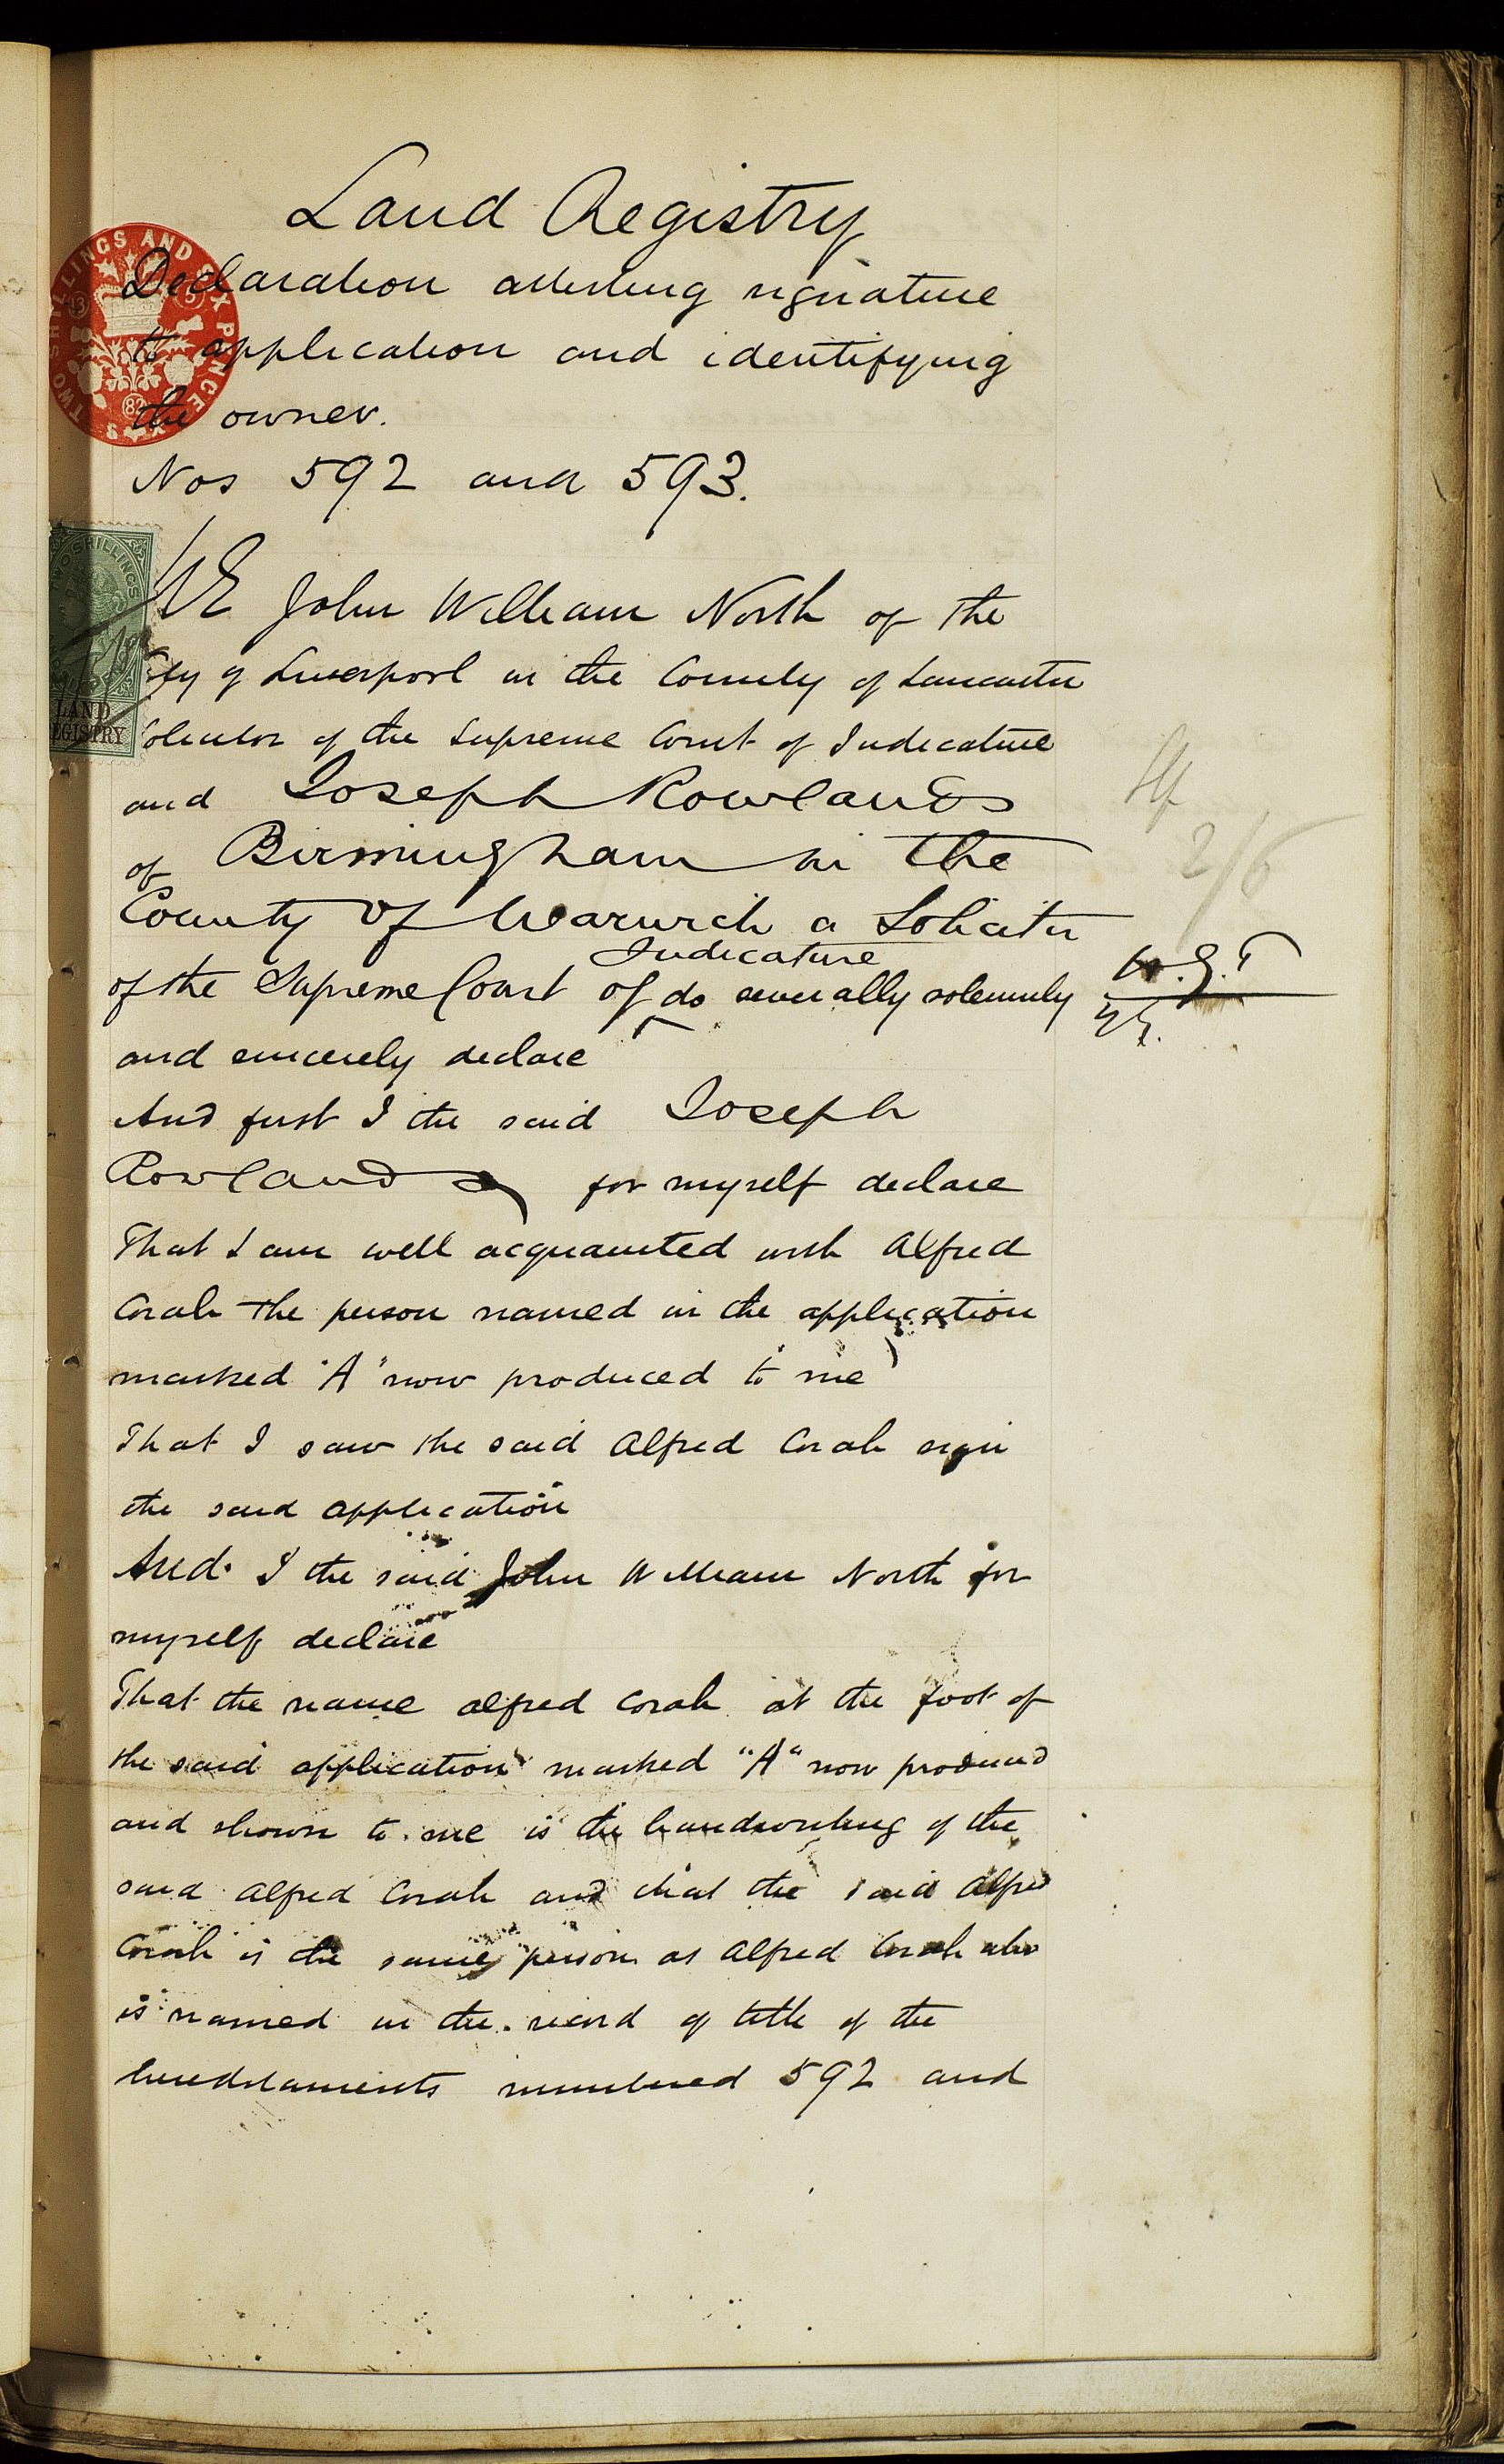 Land Registry
TWO SHILLINGS AND SIX PENCE
Declaration attesting signature
to application and identifying
the owner.
Nos 592 and 593.
TWO SHILLINGS
LAND
REGISTRY
WE John William North of the
City of Liverpool in the County of Lancaster
Solicitor of the Supreme Court of Judicature
and Joseph Rowlands
of Birmingham in the
County of Warwick a Solicitor
Judicature
of the Supreme Court of do severally solemnly
2/6
and sincerely declare
And first I the said Joseph
Rowlands for myself declare
That I am well acquainted with Alfred
Corah the person named in the application
marked "A" now produced to me
That I saw the said Alfred Corah sign
the said application
And I the said John William North for
myself declare
That the name Alfred Corah at the foot of
the said application marked "A" now produced
and shown to me is the handwriting of the
said Alfred Corah and that the said Alfred
Corah is the same person as Alfred Corah who
is named in the record of title of the
hereditaments numbered 592 and